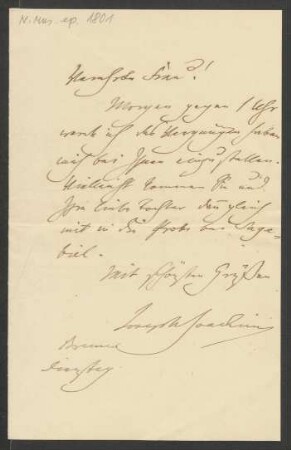 N. Mus. ep. 1801
Verehrte Frau!
Morgen gegen 1 Uhr
werde ich das Vergnügen haben
mich bei Ihnen einzustellen.
Vielleicht kommen Sie und
Ihre liebe Tochter dann gleich
mit in die Probe bei Sage-
biel.
Mit schönsten Grüßen
Joseph Joachim
Dienstag